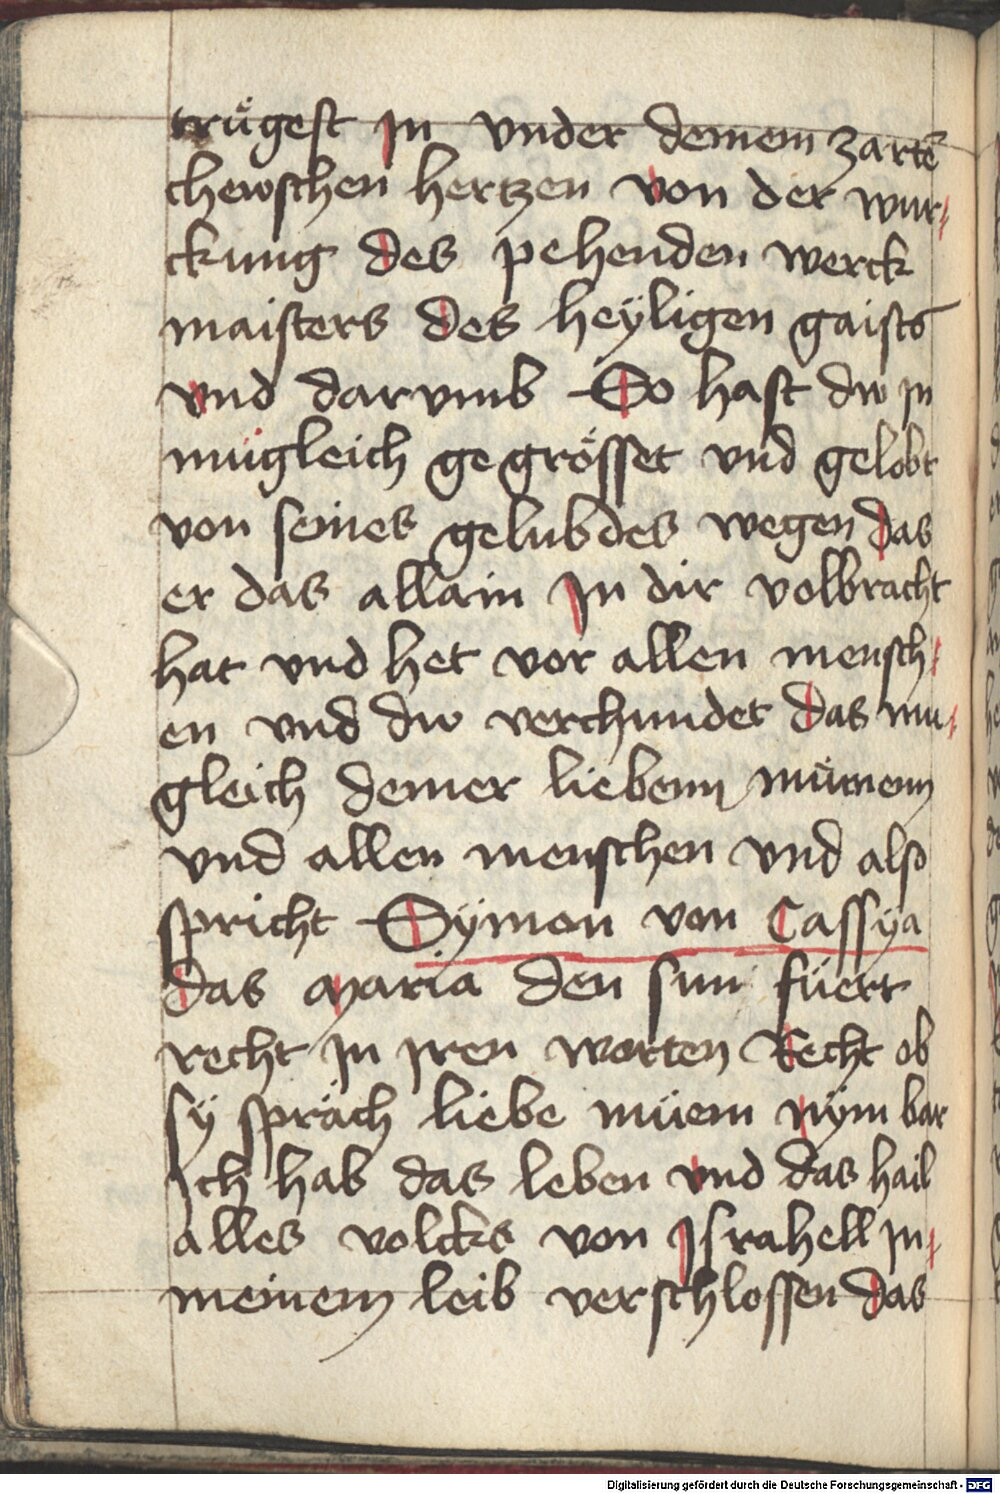 trůgest jn vnder deinem zartē
chewschen hertzen von der wur-
ckung des pehenden werck
maisters des heÿligen gaists
vnd darvmb So hast dw jn
mügleich gegrösset vnd gelobt
von seines gelubdes wegen das
er das allain jn dir volbracht
hat vnd het vor allen mensch-
en vnd dw verchundet das mu-
gleich deiner liebenn můmenn
vnd allen menschen vnd also
spricht Sÿmon von Cassÿa
das maria den sun füert
recht jn jren worten Recht ob
sÿ spräch liebe müem nÿm bar
jch hab das leben vnd das hail
alles volcks von jsrahell jn-
meinem leib verschlossen das
Digitalisierung gefördert durch die Deutsche Forschungsgemeinschaft - DFG